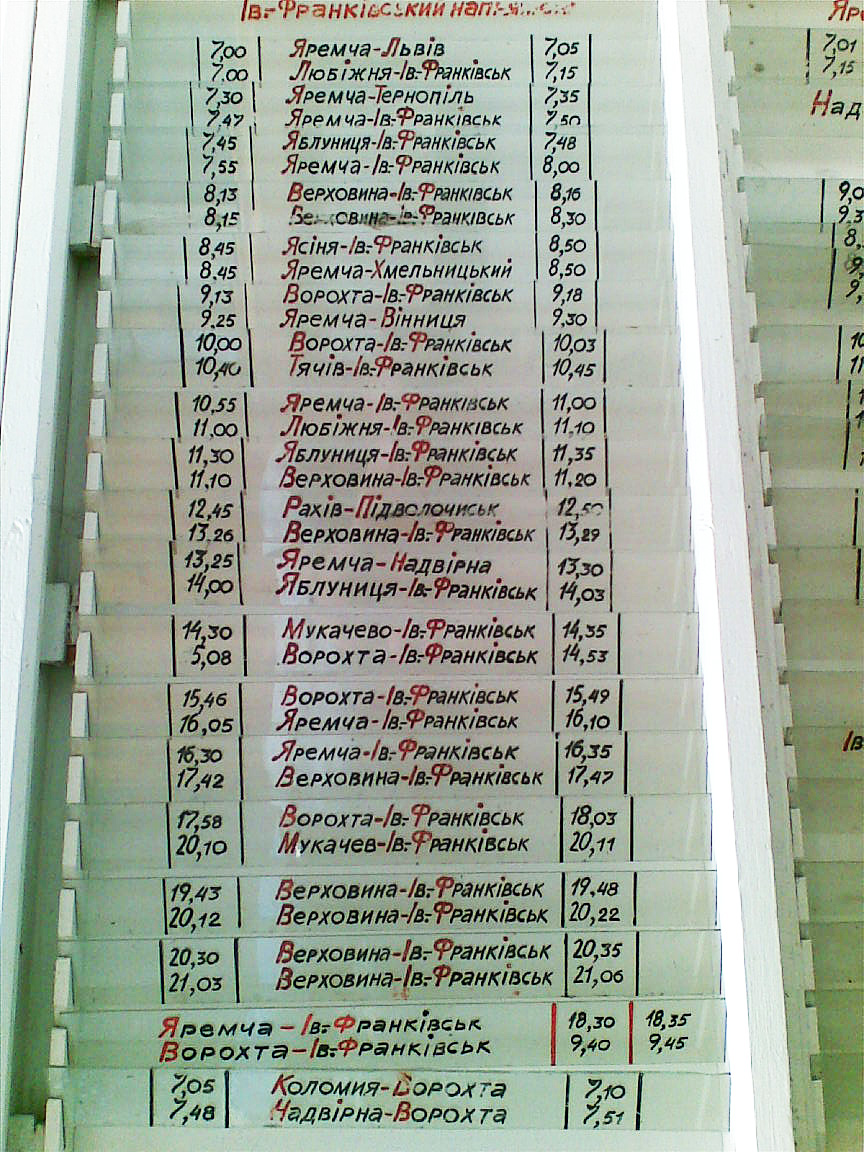 Ів.-Франківський
7,00 Яремча-Львів 7,05
7,00 Любіжня-Ів.-Франківськ 7,15
7,30 Яремча-Тернопіль 7,35
7,47 Яремча-Ів.-Франківськ 7,50
7,45 Яблуниця-Ів.-Франківськ 7,48
7,55 Яремча-Ів.-Франківськ 8,00
8,13 Верховина-Ів.-Франківськ 8,16
8,15 Верховина-Ів.-Франківськ 8,30
8,45 Ясіня-Ів.-Франківськ 8,50
8,45 Яремча-Хмельницький 8,50
9,13 Ворохта-Ів.-Франківськ 9,18
9,25 Яремча-Вінниця 9,30
10,00 Ворохта-Ів.-Франківськ 10,03
10,40 Тячів-Ів.-Франківськ 10,45
10,55 Яремча-Ів.-Франківськ 11,00
11,00 Любіжня-Ів.-Франківськ 11,10
11,30 Яблуниця-Ів.-Франківськ 11,35
11,10 Верховина-Ів.-Франківськ 11,20
12,45 Рахів-Підволочиськ 12,50
13,26 Верховина-Ів.-Франківськ 13,29
13,25 Яремча-Надвірна 13,30
14,00 Яблуниця-Ів.-Франківськ 14,03
14,30 Мукачево-Ів.-Франківськ 14,35
5,08 Ворохта-Ів.-Франківськ 14,53
15,46 Ворохта-Ів.-Франківськ 15,49
16,05 Яремча-Ів.-Франківськ 16,10
16,30 Яремча-Ів.-Франківськ 16,35
17,42 Верховина-Ів.-Франківськ 17,47
17,58 Ворохта-Ів.-Франківськ 18,03
20,10 Мукачев-Ів.-Франківськ 20,11
19,43 Верховина-Ів.-Франківськ 19,48
20,12 Верховина-Ів.-Франківськ 20,22
20,30 Верховина-Ів.-Франківськ 20,35
21,03 Верховина-Ів.-Франківськ 21,06
Яремча-Ів.-Франківськ 18,30 18,35
Ворохта-Ів.-Франківськ 9,40 9,45
7,05 Коломия-Ворохта 7,10
7,48 Надвірна-Ворохта 7,51
7,01
7,15